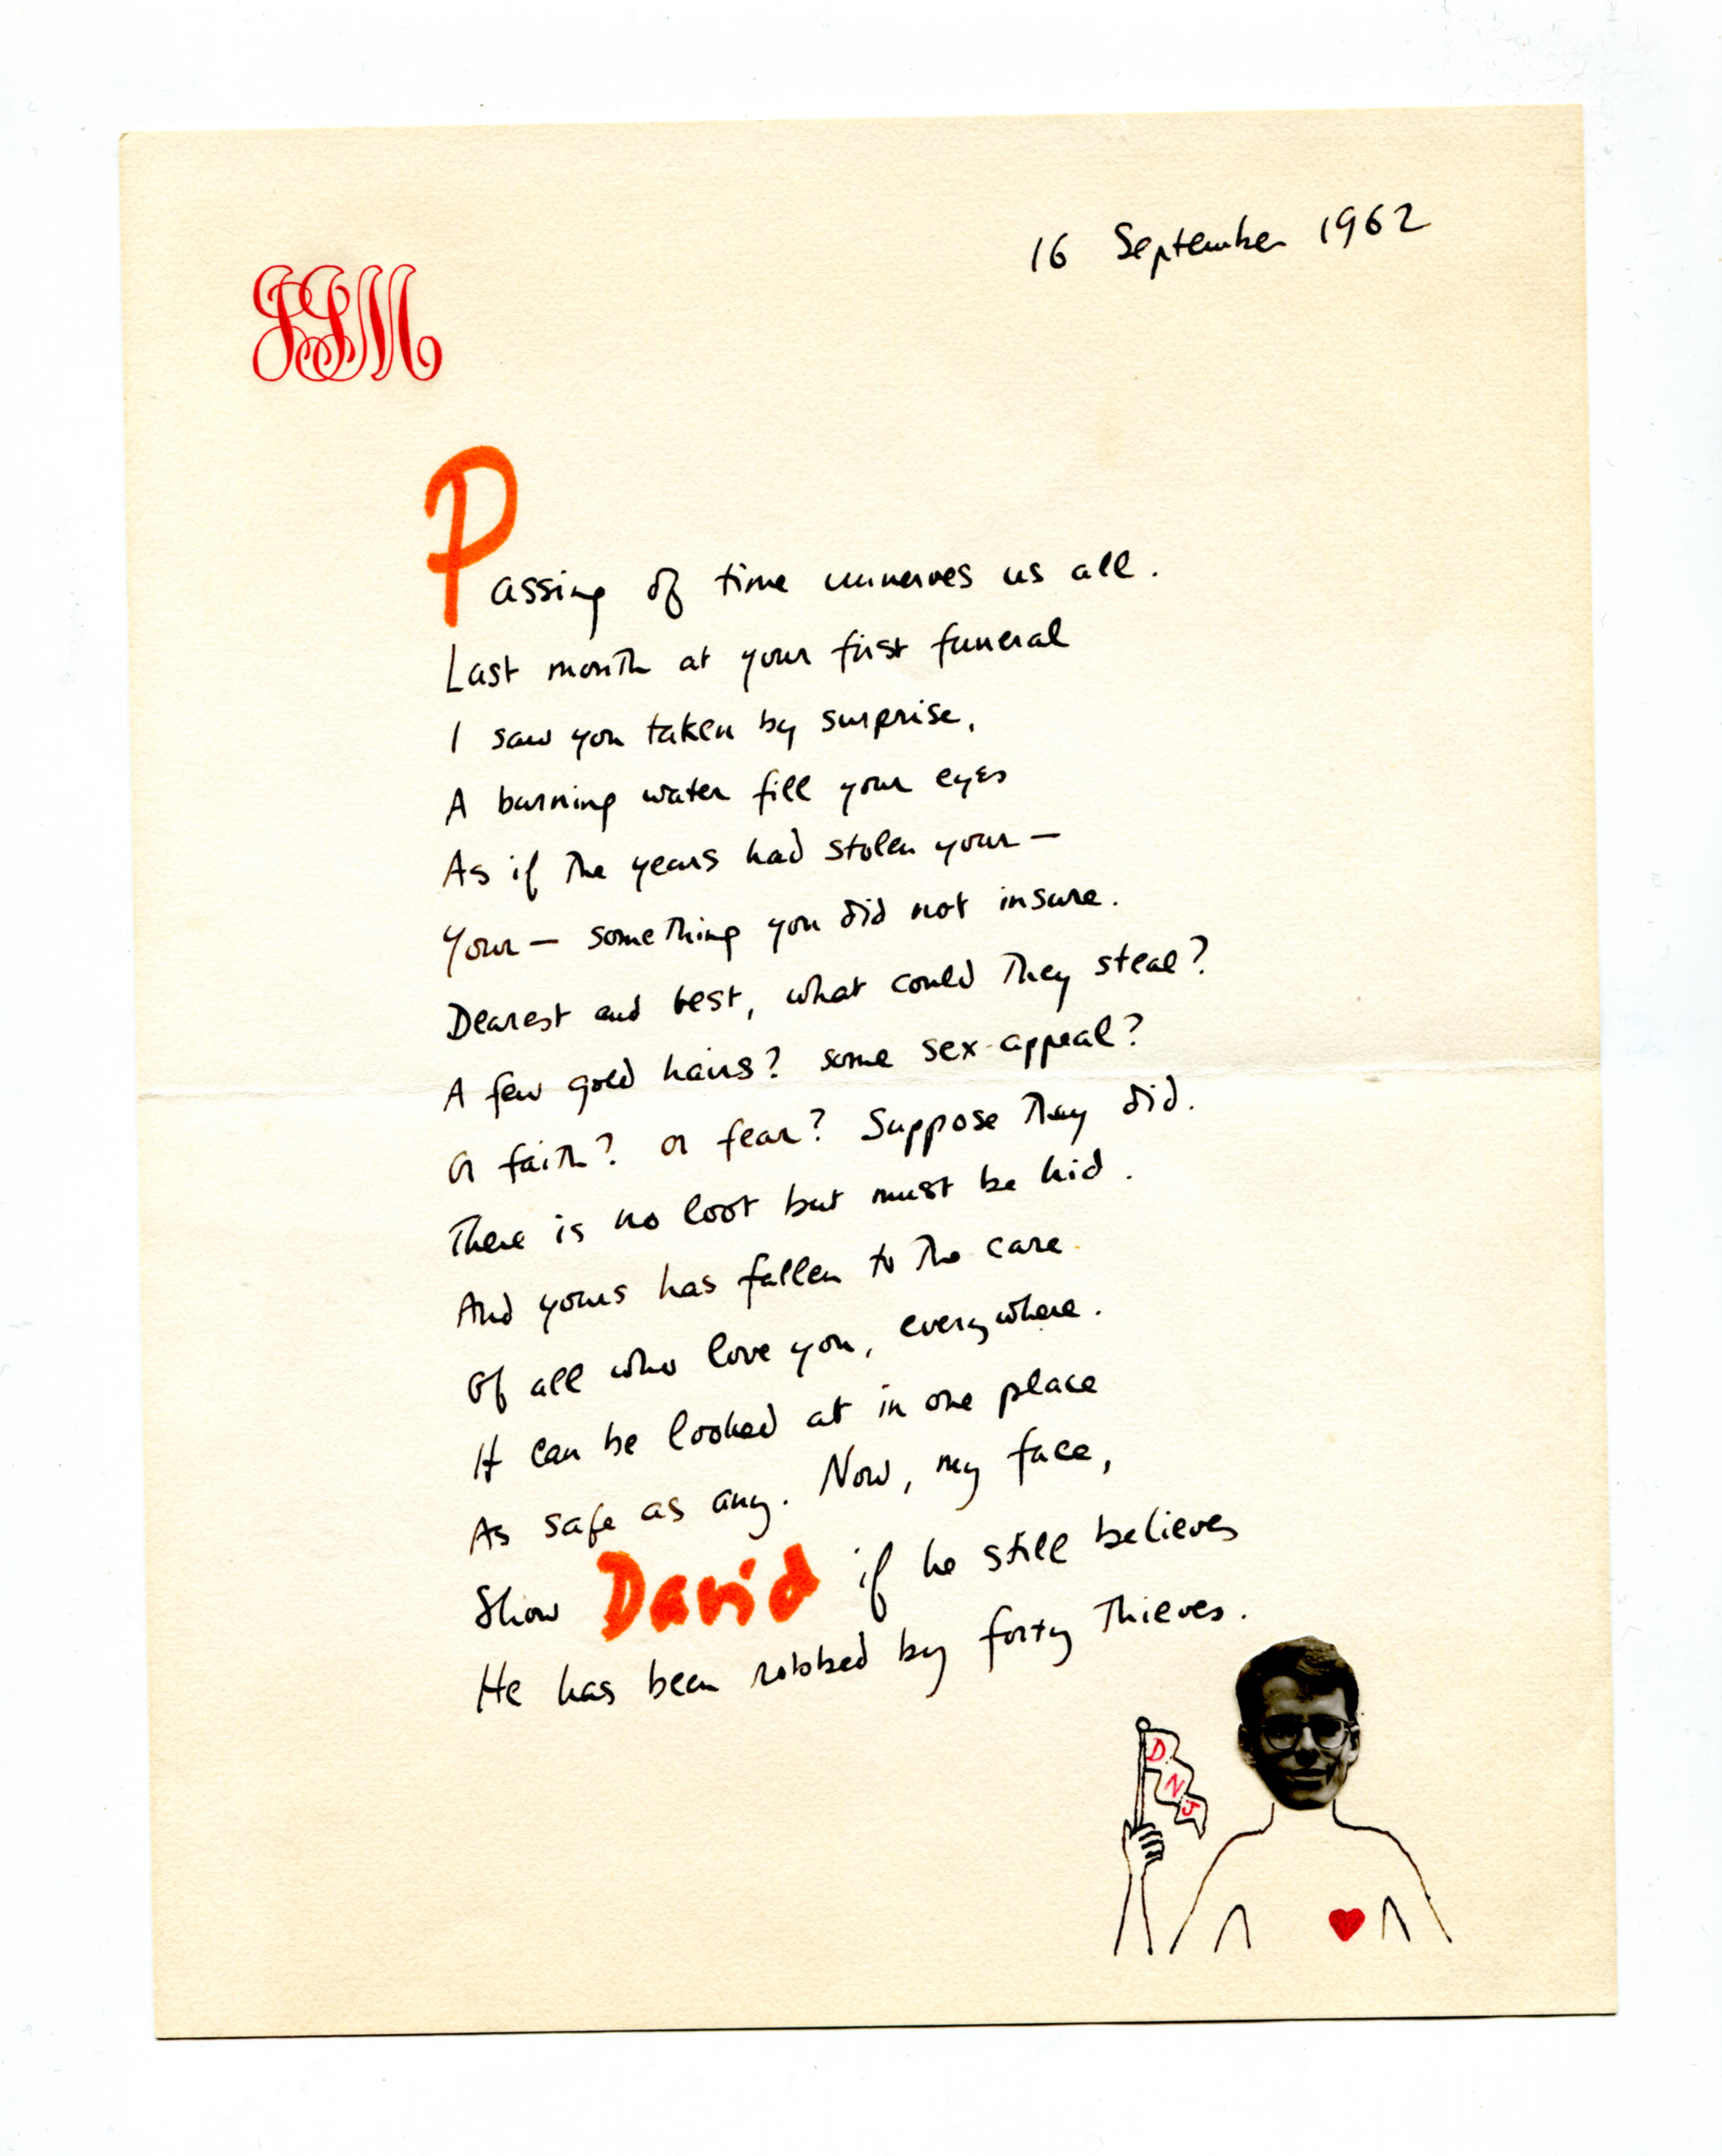 16 September 1962
JIM
Passing of time unnerves us all.
Last month at your first funeral
I saw you taken by surprise,
A burning water fill your eyes
As if the years had stolen your —
Your — something you did not insure.
Dearest and best, what could they steal?
A few gold hairs? some sex-appeal?
Or faith? or fear? Suppose they did.
There is no loot but must be hid.
And yours has fallen to the care
Of all who love you, everywhere.
It can be looked at in one place
As safe as any. Now, my face,
Show David if he still believes
He has been robbed by forty thieves.
D.
N.
J